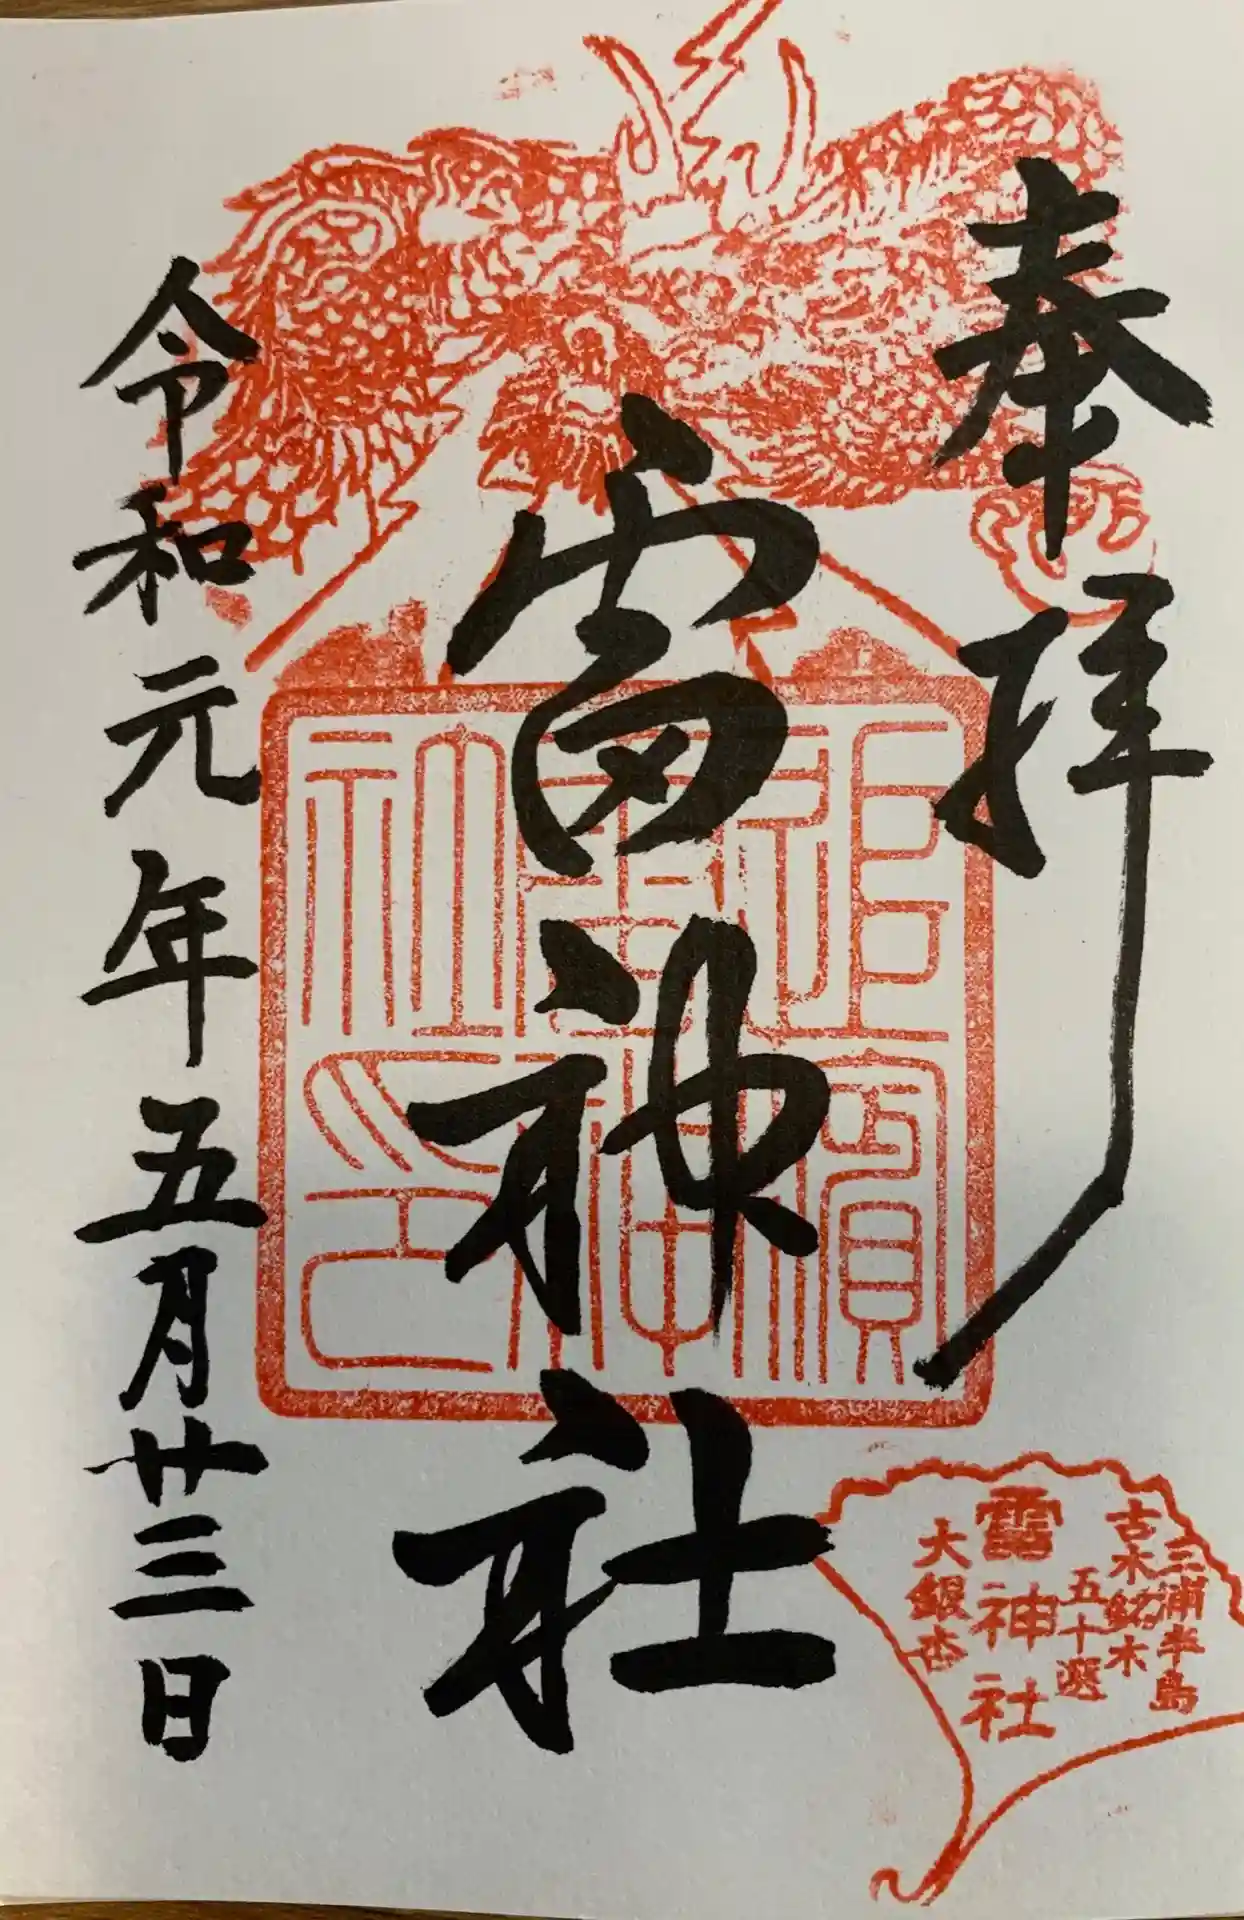 奉拝
雷神社
令和元年五月廿三日
追濱
雷神
社印
三浦半島
古木銘木
五十選
雷神社
大銀杏